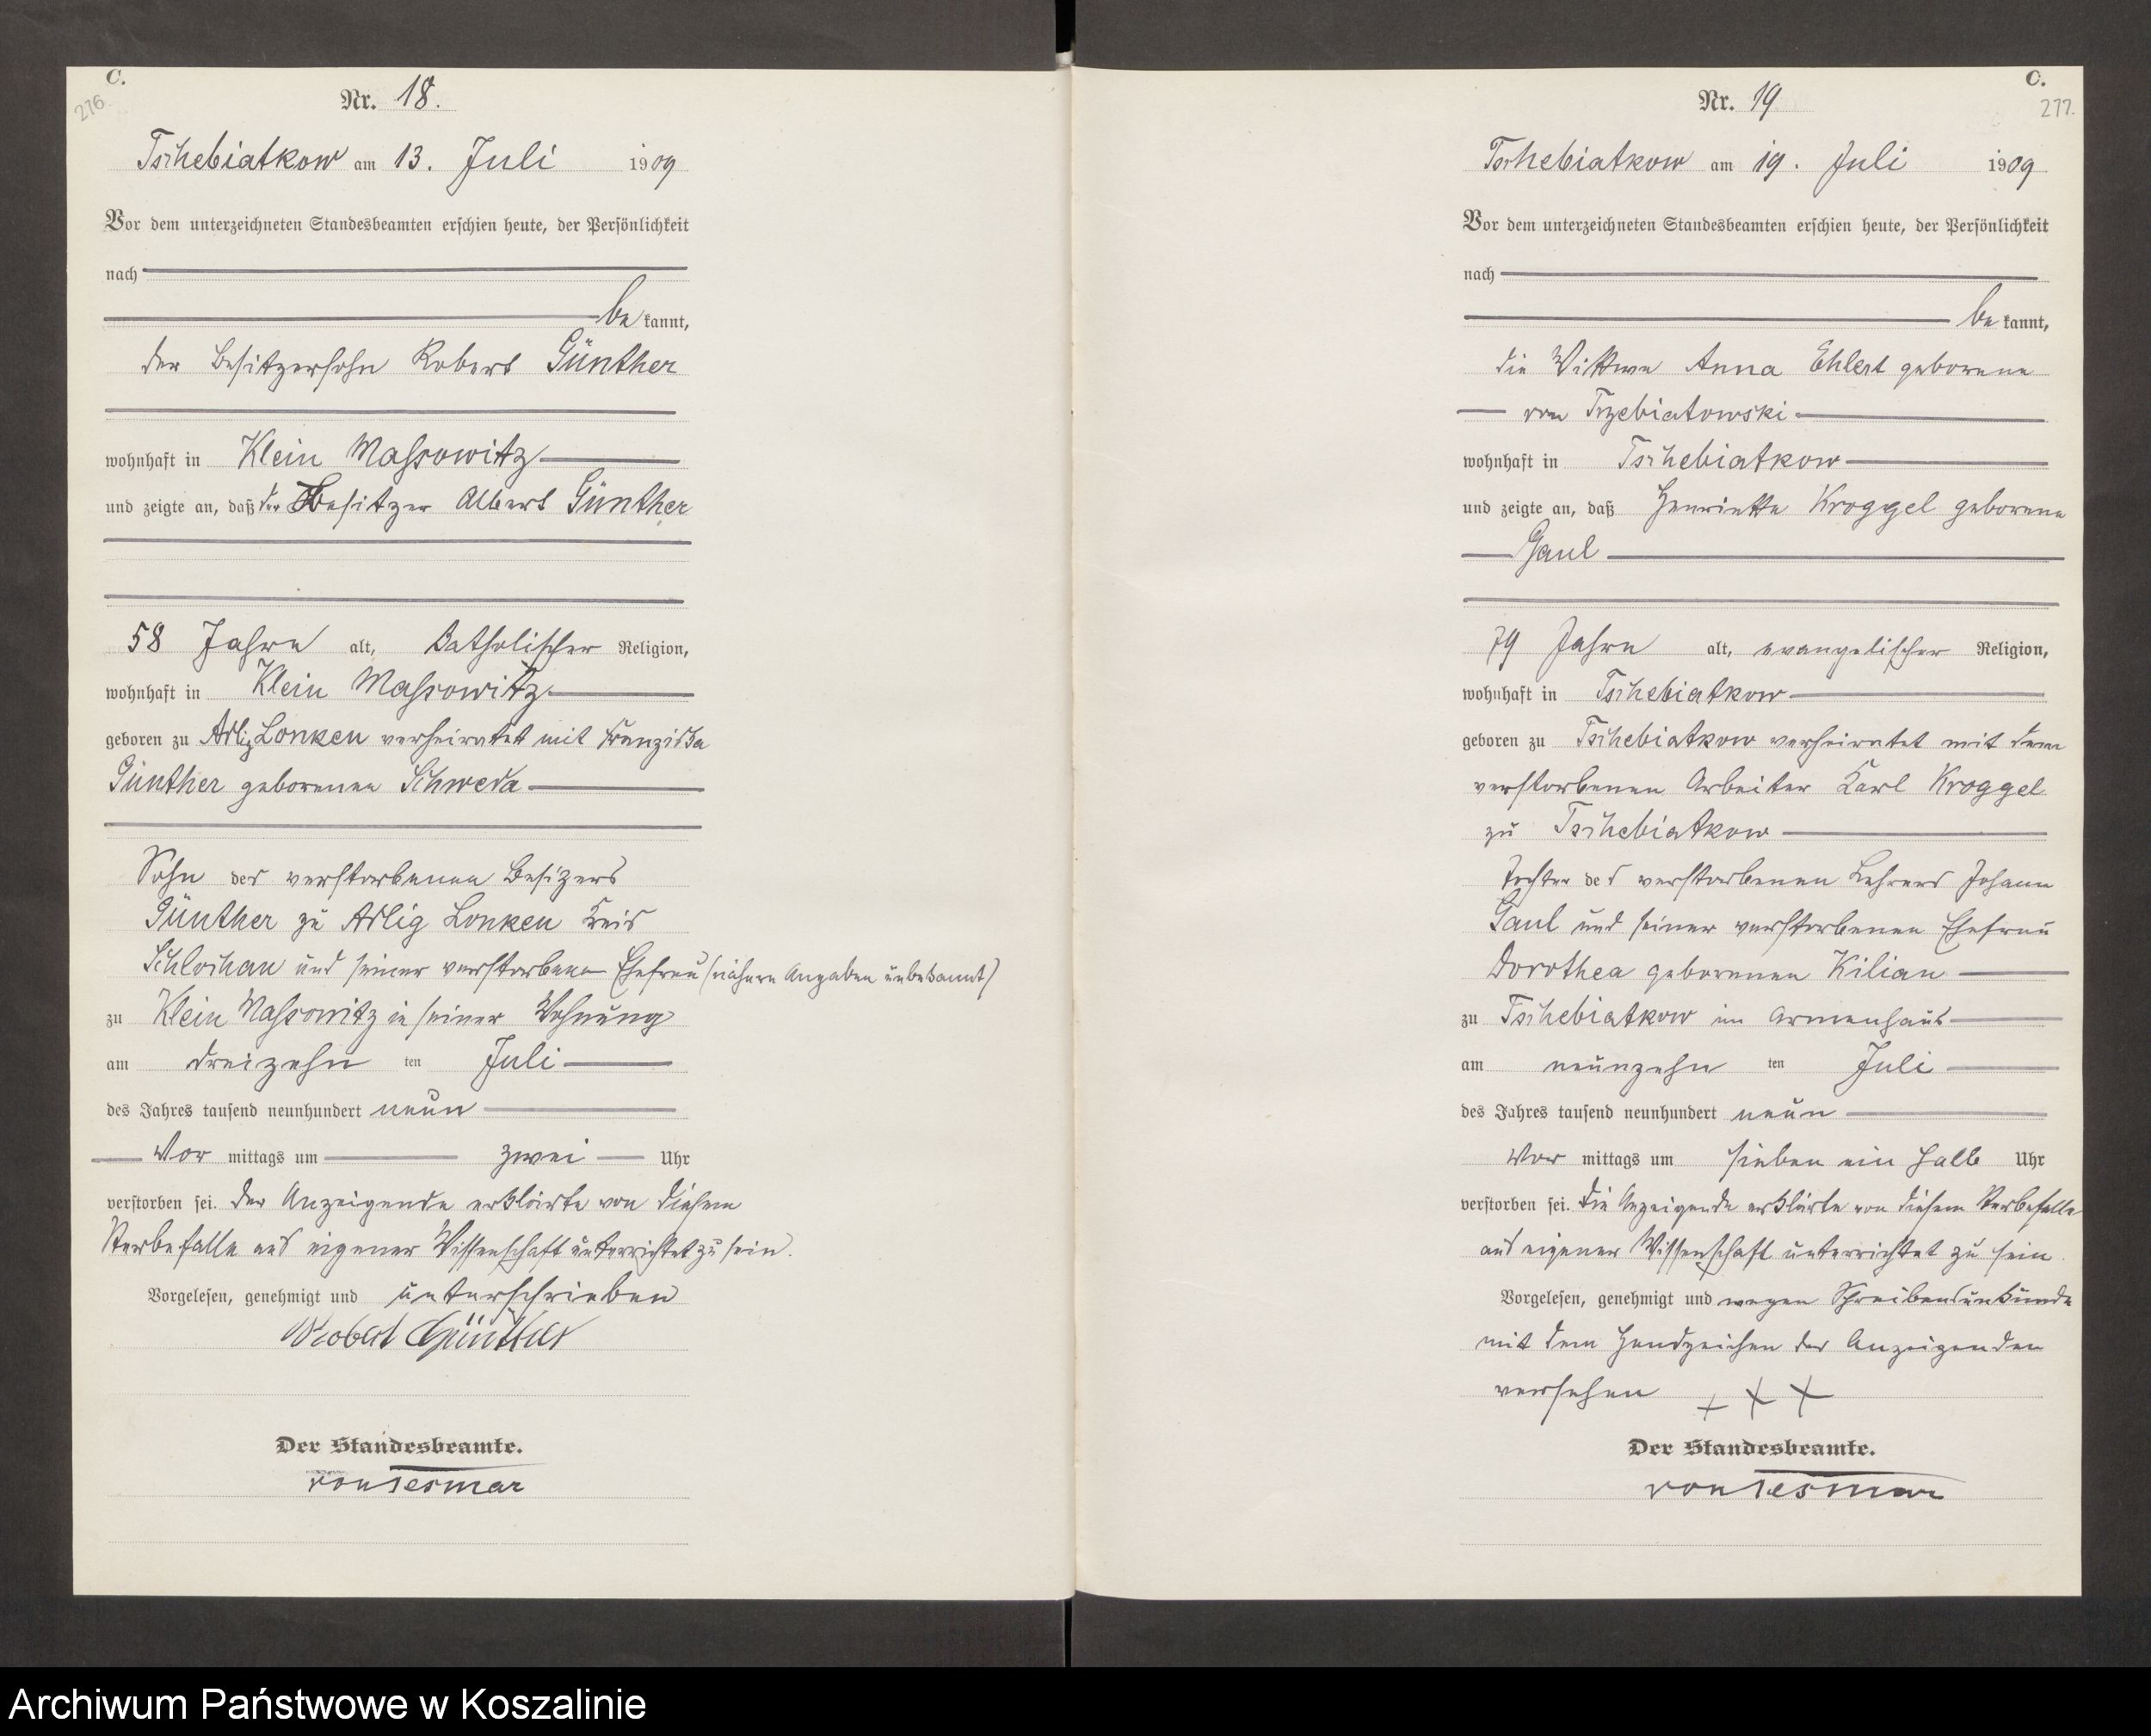 C.
276.
Nr. 18.
Tschebiatkow am 13. Juli 1909
Vor dem unterzeichneten Standesbeamten erschien heute, der Persönlichkeit
nach
be kannt,
der Besitzersohn Robert Günther
wohnhaft in Klein Massowitz
und zeigte an, daß der Besitzer Albert Günther
58 Jahre alt, katholischer Religion,
wohnhaft in Klein Massowitz
geboren zu Adlig Lonken verheiratet mit Franziska
Günther geborenen Schweda
Sohn des verstorbenen Besizers
Günther zu Adlig Lonken Kreis
Schlochau und seiner verstorbenen Ehefrau (nähere Angaben unbekannt)
zu Klein Massowitz in seiner Wohnung
am dreizehn ten Juli
des Jahres tausend neunhundert neun
Vor mittags um zwei Uhr
verstorben sei. Der Anzeigende erklärte von diesem
Sterbefalle aus eigener Wissenschaft unterrichtet zu sein.
Vorgelesen, genehmigt und unterschrieben
Robert Günther
Der Standesbeamte.
von Tesmar
C.
277.
Nr. 19
Tschebiatkow am 19. Juli 1909
Vor dem unterzeichneten Standesbeamten erschien heute, der Persönlichkeit
nach
be kannt,
die Wittwe Anna Ehlert geborene
von Trzebiatowski
wohnhaft in Tschebiatkow
und zeigte an, daß Henriette Kroggel geborene
Gaul
79 Jahre alt, evangelischer Religion,
wohnhaft in Tschebiatkow
geboren zu Tschebiatkow verheiratet mit dem
verstorbenen Arbeiter Karl Kroggel
zu Tschebiatkow
Tochter des verstorbenen Lehrers Johann
Gaul und seiner verstorbenen Ehefrau
Dorothea geborenen Kilian
zu Tschebiatkow im Armenhaus
am neunzehn ten Juli
des Jahres tausend neunhundert neun
Vor mittags um sieben ein halb Uhr
verstorben sei. Die Anzeigende erklärte von diesem Sterbefalle
aus eigener Wissenschaft unterrichtet zu sein.
Vorgelesen, genehmigt und wegen Schreibensunkunde
mit dem Handzeichen der Anzeigenden
versehen + + +
Der Standesbeamte.
von Tesmar
Archiwum Państwowe w Koszalinie